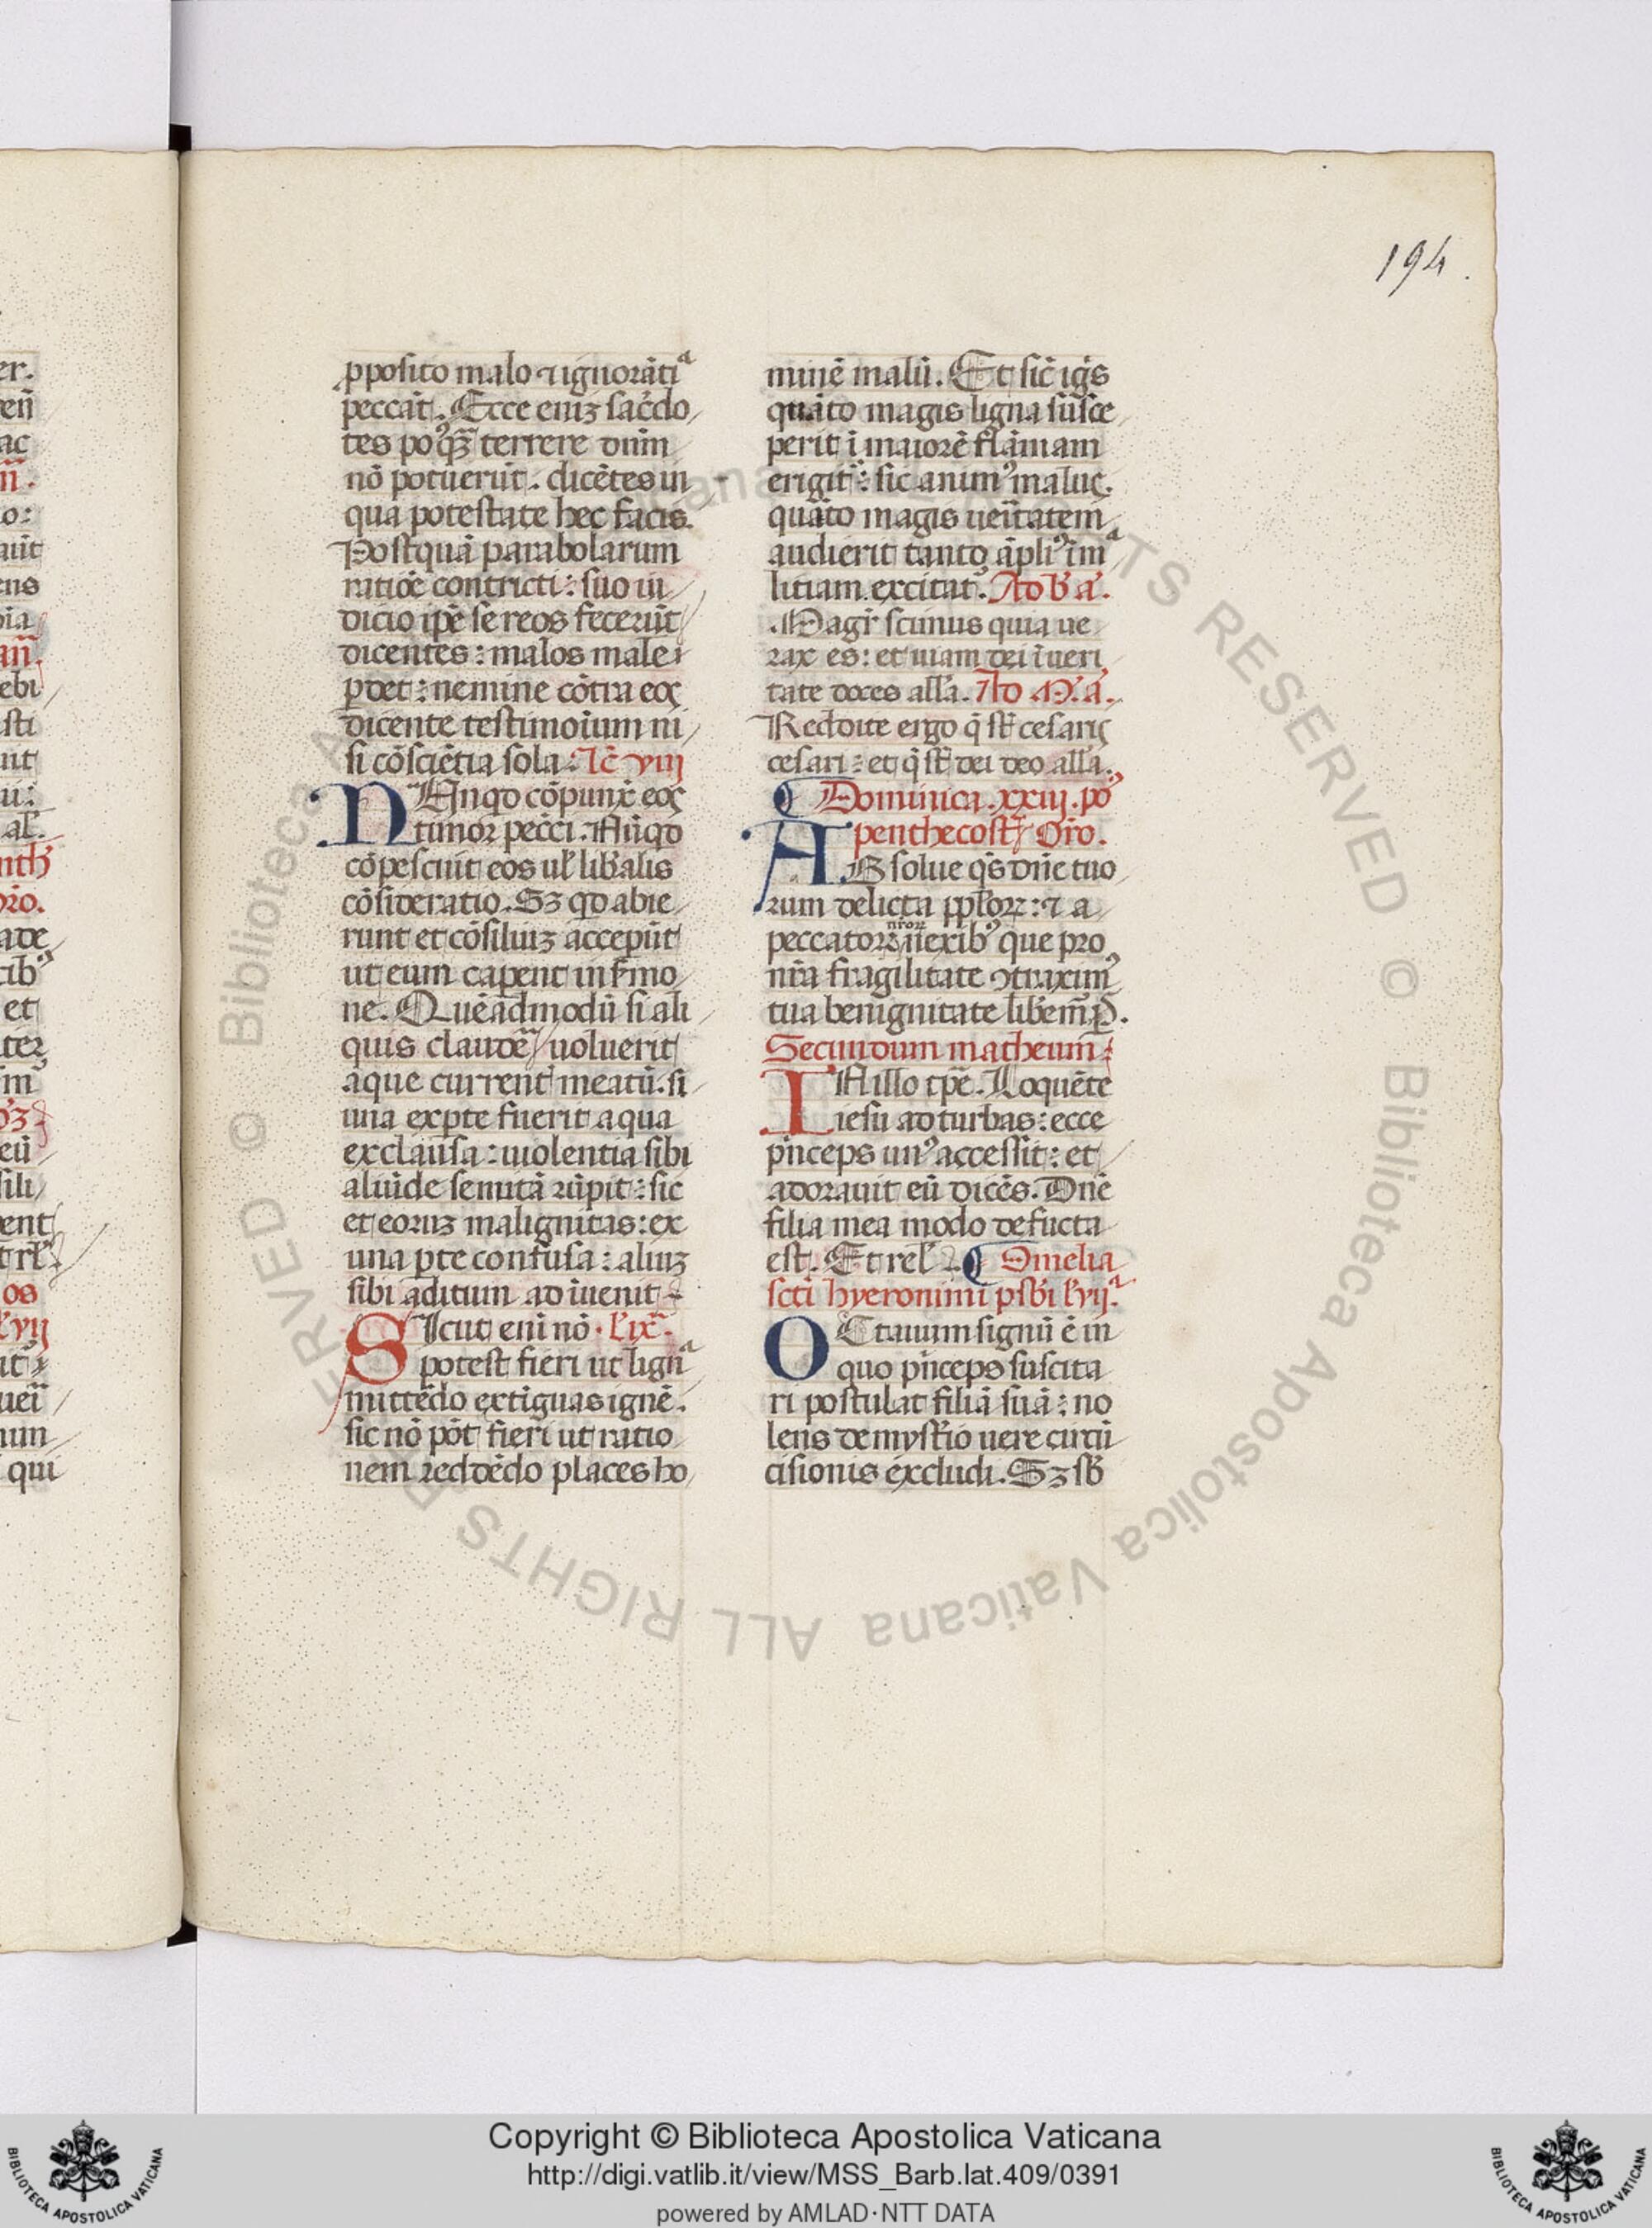 194.
ꝓposito malo ⁊ ignorātiᵃ
peccāt. Ecce eniꝫ sac̄do
tes poꝰqꝫ̄ terrere dnm̄
nō potuerūt. dicētes in
qua potestate hec facis.
Postquā parabolarum
ratiōe contricti: suo iu
dicio ip̄e se reos fecerūt
dicentes: malos male
ꝑdet: nemine cōtra eos
dicente testimoīum ni
si cōsciētia sola: lc̄ viij
NAnqd cōpunx̄ eos
timor pecc̄i. Nūqd
cōpescuit eos ul̄ lib̄alis
cōsideratio. Sꝫ qd abie
runt et cōsiluiꝫ accepūt
ut eum caꝑent in s̄mo
ne. Quēadmodū si ali
quis claudē uoluerit
aque current̄ meatū. si
una ex ꝑte fuerit aqua
exclausa: uiolentia sibi
aliūde semitā rūpit: sic
et eoruꝫ malignitas: ex
una ꝑte confusa: aliuꝫ
sibi aditum adīuenit
SIcut eni nō. l̄ ix.
potest fieri ut lignᵃ
mittēdo extīguas ignē.
sic nō pōt fieri ut ratio
nem reddēdo places ho
minē malū. Et sic̄ igis
quāto magis ligna susce
perit ī maiorē flāmam
erigit̄: sic animꝰ malus.
quāto magis ueritatem
audierit tanto āpliꝰ ī mᵃ
litiam excitat̄. Ad b̄ a.
Magr̄ scimus quia ue
rax es: et uiam dei ī ueri
tate doces all̄a. Ad M. a.
Reddite ergo q̄ st̄ cesaris
cesari: et q̄ st̄ dei deo all̄a.
¶ Dominica .xxiij. poꝰ
penthecost̄ Or̄o.
ABsolue q̄s dn̄e tuo
rum delicta ppl̄oꝝ: ⁊ a
peccatoꝝ nr̄oꝝ nexibꝰ que pro
nr̄a fragilitate ꝯtraximꝰ
tua benignitate lib̄em̄. P.
Secundum matheum:
IN illo tp̄e. Loquēte
iesu ad turbas: ecce
p̄nceps unꝰ accessit: et
adorauit eū dicēs. Dn̄e
filia mea modo defūcta
est. Et rel̄. ¶ Omelia
sc̄ti hyeronimi psb̄i l̄ vijᵃ
OCtauum signū ē in
quo p̄nceps suscita
ri postulat filiā suā: no
lens de myst̄io uere circū
cisionis excludi. Sꝫ sb̄
er.
ac
o:
aūt
ens
ebi
sti
et
os
l̄ vij
qui
Copyright © Biblioteca Apostolica Vaticana
http://digi.vatlib.it/view/MSS_Barb.lat.409/0391
powered by AMLAD·NTT DATA
BIBLIOTECA APOSTOLICA VATICANA
BIBLIOTECA APOSTOLICA VATICANA
© Biblioteca Apostolica Vaticana ALL RIGHTS RESERVED